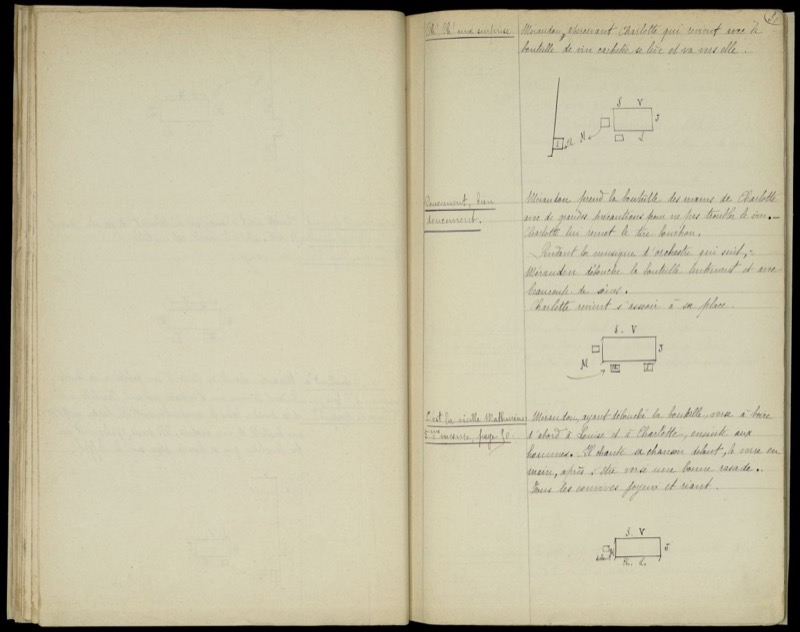 Oh! Oh! une surprise
Merandon, apercevant Charlotte qui revient avec la
bouteille de vin cachetée se lève et va vers elle.
S V
J
M
L
Doucement, bien
doucement.
Merandon prend la bouteille des mains de Charlotte
avec de grandes précautions pour ne pas troubler le vin. —
Charlotte lui remet le tire bouchon.
Pendant la musique d'orchestre qui suit,
Merandon débouche la bouteille lentement et avec
beaucoup de soins.
Charlotte revient s'asseoir à sa place.
S. V
J
M
C'est la vieille Mathurine
5me mesure, page 50
Merandon, ayant débouché la bouteille, verse à boire
d'abord à Louise et à Charlotte, ensuite aux
hommes. Il chante sa chanson debout, le verre en
main, après s'être versé une bonne rasade.
Tous les convives joyeux et riant.
S. V
M
Ch. L.